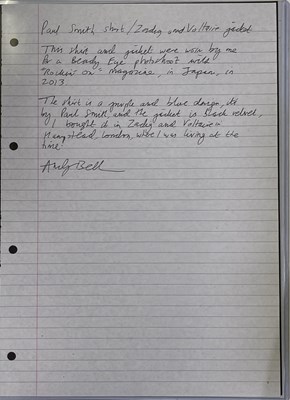 Paul Smith shirt / Zadig and Voltaire jacket
This shirt and jacket were worn by me
for a Beady Eye photoshoot with
"Rockin' on" magazine, in Japan, in
2013
The shirt is a purple and blue design, it's
by Paul Smith, and the jacket is black velvet,
I bought it in Zadig and Voltaire in
Hampstead, London, where I was living at the
time.
Andy Bell